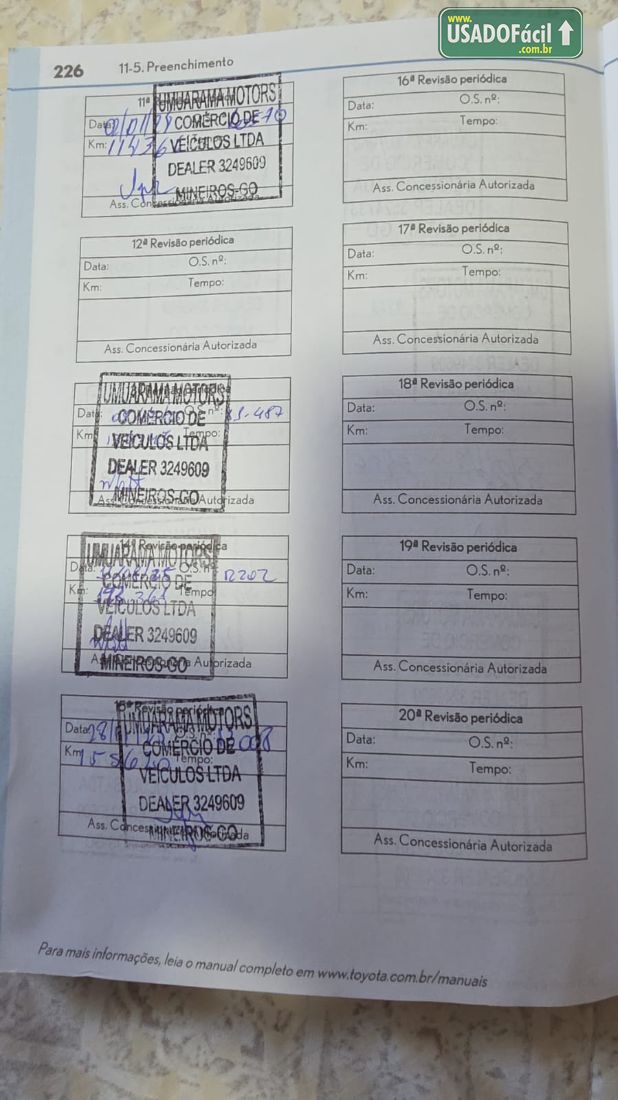 www.
USADOFácil
.com.br
226 11-5. Preenchimento
11ª
UMUARAMA MOTORS
Data:
COMÉRCIO DE
Km:
VEÍCULOS LTDA
DEALER 3249609
MINEIROS-GO
Ass. Concessionária Autorizada
12ª Revisão periódica
Data: O.S. nº:
Km: Tempo:
Ass. Concessionária Autorizada
UMUARAMA MOTORS
Data: O.S. nº:
COMÉRCIO DE
Km: Tempo:
VEÍCULOS LTDA
DEALER 3249609
MINEIROS-GO
Ass. Concessionária Autorizada
14ª Revisão periódica
UMUARAMA MOTORS
Data: O.S. nº: 12202
COMÉRCIO DE
Km: Tempo:
VEÍCULOS LTDA
DEALER 3249609
MINEIROS-GO
Ass. Concessionária Autorizada
15ª Revisão periódica
UMUARAMA MOTORS
Data:
COMÉRCIO DE
Km: Tempo:
VEÍCULOS LTDA
DEALER 3249609
MINEIROS-GO
Ass. Concessionária Autorizada
16ª Revisão periódica
Data: O.S. nº:
Km: Tempo:
Ass. Concessionária Autorizada
17ª Revisão periódica
Data: O.S. nº:
Km: Tempo:
Ass. Concessionária Autorizada
18ª Revisão periódica
Data: O.S. nº:
Km: Tempo:
Ass. Concessionária Autorizada
19ª Revisão periódica
Data: O.S. nº:
Km: Tempo:
Ass. Concessionária Autorizada
20ª Revisão periódica
Data: O.S. nº:
Km: Tempo:
Ass. Concessionária Autorizada
Para mais informações, leia o manual completo em www.toyota.com.br/manuais